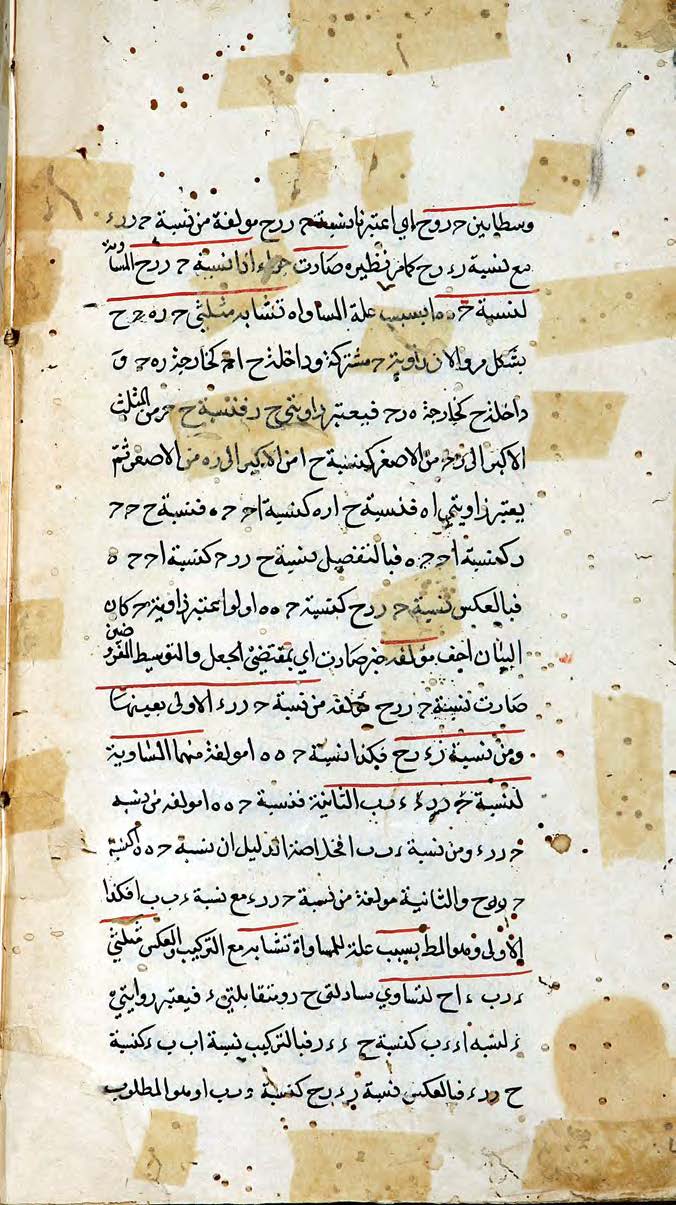 وسطا بين ح ر و ح اي اعتبرنا نسبة ح ر ر ح مولفة من نسبة ح ر ر ء
مع نسبة ر ء ر ح كما من نظيره صارت اذا نسبة ح ر ر ح المساوية
لنسبة ح ه ه ا بسبب علة المساواه تشابه مثلثي ح ر ه ح ح
بشكل مر والان زاوية ح مشتركة وداخلة ح ا كخارجة ر ه ح و
داخلة ح كخارجة ه ر ح فيعتبر زاويتي ح ر فنسبة ح ح من المثلث
الاكبر الى ر ح من الاصغر كنسبة ح ا من الاكبر الى ر ه من الاصغر ثم
يعتبر زاويتي ا ه فنسبة ح ا ر ه كنسبة ا ح ح ه فنسبة ح ح ح
ر كنسبة ا ح ح ه فبالتفصيل نسبة ح ر ر ح كنسبة ا ح ح ه
فبالعكس نسبة ح ر ر ح كنسبة ح ه ه ا ولو اعتبر زاوية ح كان
البيان اخف مولفه خبر صارت اي بمقتضى الجعل والتوسيط المفروضين
صارت نسبة ح ر ر ح مولفه من نسبة ح ر ر ء الاولى بعينها
ومن نسبة ر ء ر ح فكذا نسبة ح ه ه ا مولفة منهما المساوية
لنسبة ح ر ر ء ء ب ب الثانية فنسبة ح ه ه ا مولفه من نسبه
ح ر ر ء ومن نسبة ء ب ب ا فخلاصة الدليل ان نسبة ح ه ه ا كنسبة
ح ر ر ح والثانية مولفة من نسبة ح ر ر ء مع نسبة ء ب ب ا فكذا
الاولى وهو المط بسبب علة للمساواة تشابه مع التركيب والعكس مثلثي
ء ر ب ء ا ح لتساوي مبادلتي ح ر ومتقابلتي ء فيعتبر زوايتي
ء لنسبه ا ء ء ب كنسبة ح ء ء ر فبالتركيب نسبة ا ب ب ء كنسبة
ح ر ر ء فبالعكس نسبة ر ء ر ح كنسبة ء ب ب ا وهو المطلوب